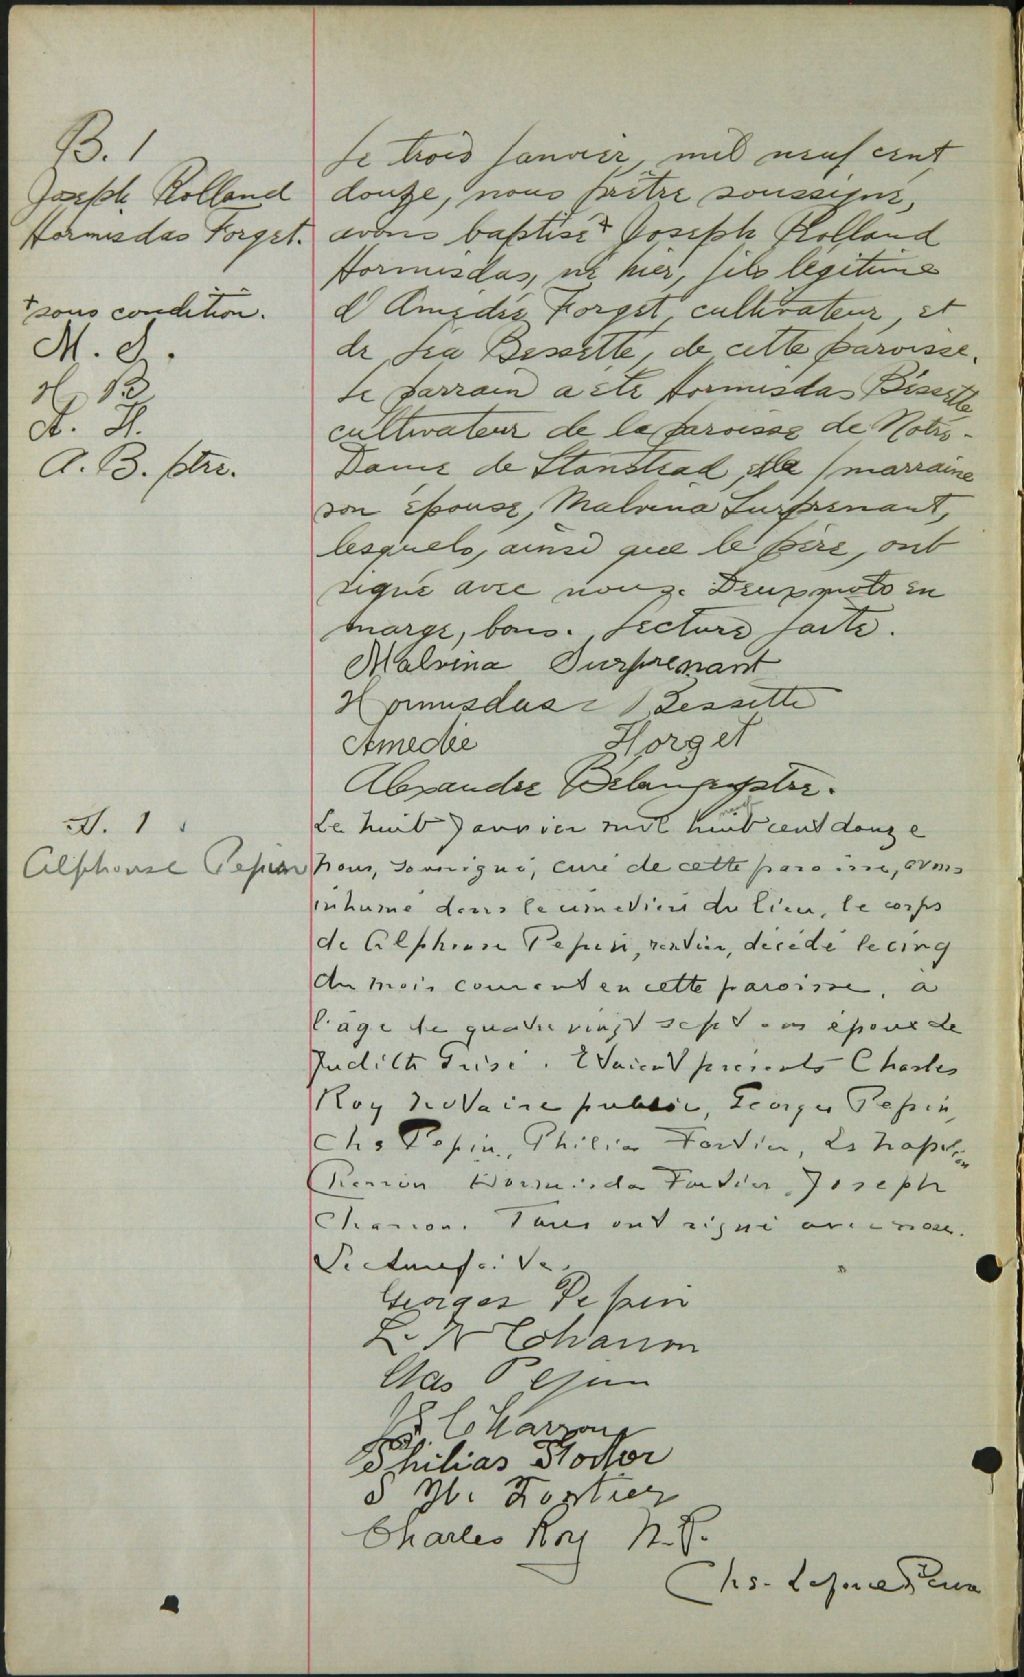 B. 1
Joseph Rolland
Hormisdas Forget.
+ sous condition.
M. S.
H. B.
A. H.
A. B. ptre.
Le trois Janvier, mil neuf cent
douze, nous prêtre soussigné,
avons baptisé + Joseph Rolland
Hormisdas, né hier, fils légitime
d'Amédée Forget, cultivateur, et
de Léa Bessette, de cette paroisse.
Le parrain a été Hormisdas Bessette
cultivateur de la paroisse de Notre-
Dame de Stanstead, et la marraine
son épouse, Malvina Surprenant,
lesquels, ainsi que le père, ont
signé avec nous. Deux mots en
marge, bons. Lecture faite.
Malvina Surprenant
Hormisdas Bessette
Amedée Horget
Alexandre Bélanger ptre.
S. 1
Alphonse Pepin
Le huit Janvier mil neuf huit cent douze
Nous, soussigné, curé de cette paroisse, avons
inhumé dans le cimetière du lieu, le corps
de Alphonse Pepin, rentier, décédé le cinq
du mois courant en cette paroisse, à
l'âge de quatre vingt sept ans époux de
Judith Grisé. Etaient présents Charles
Roy notaire public, Georges Pepin,
Chs Pepin, Philias Fortier, Ls Napoléon
Charron Hormisda Fortier, Joseph
Charron. Tous ont signé avec nous.
Lecture faite.
Georges Pepin
L. N Charron
Chas Pepin
J.E. Charron
Philias Fortier
S H. Fortier
Charles Roy N.P.
Chs.